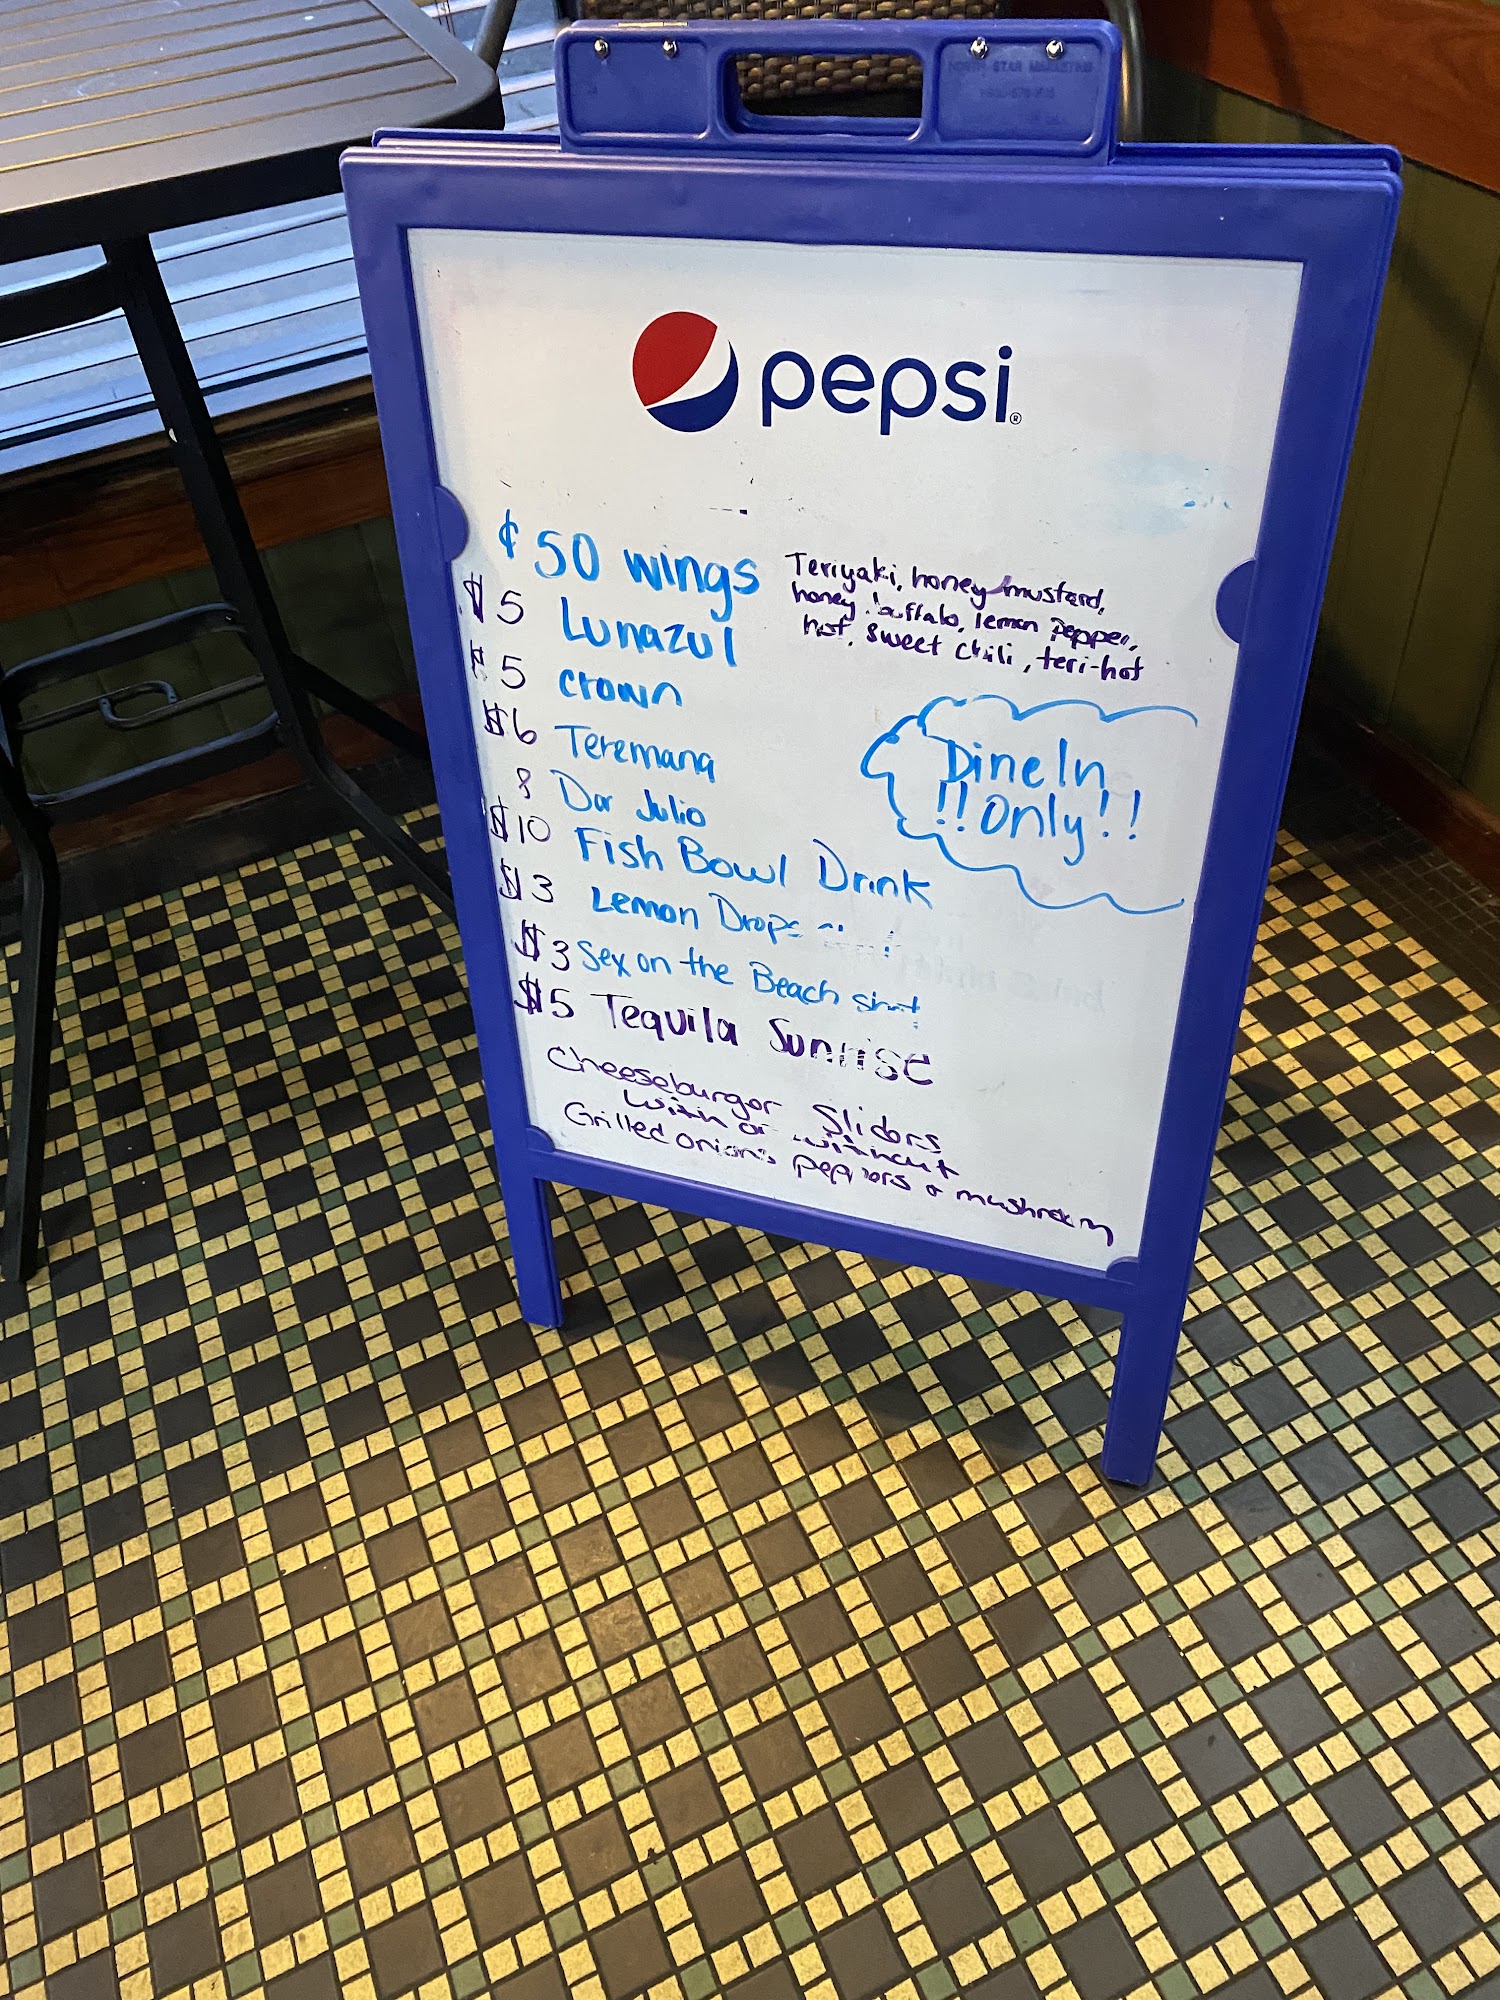 pepsi®
¢50 wings
Teriyaki, honey mustard,
honey buffalo, lemon pepper,
hot, sweet chili, teri-hot
$5 Lunazul
$5 Crown
$6 Teremana
8 Don Julio
Dine In
!!Only!!
$10 Fish Bowl Drink
$3 Lemon Drops
$3 Sex on the Beach shot
$5 Tequila Sunrise
Cheeseburger Sliders
with or without
Grilled onions peppers & mushroom